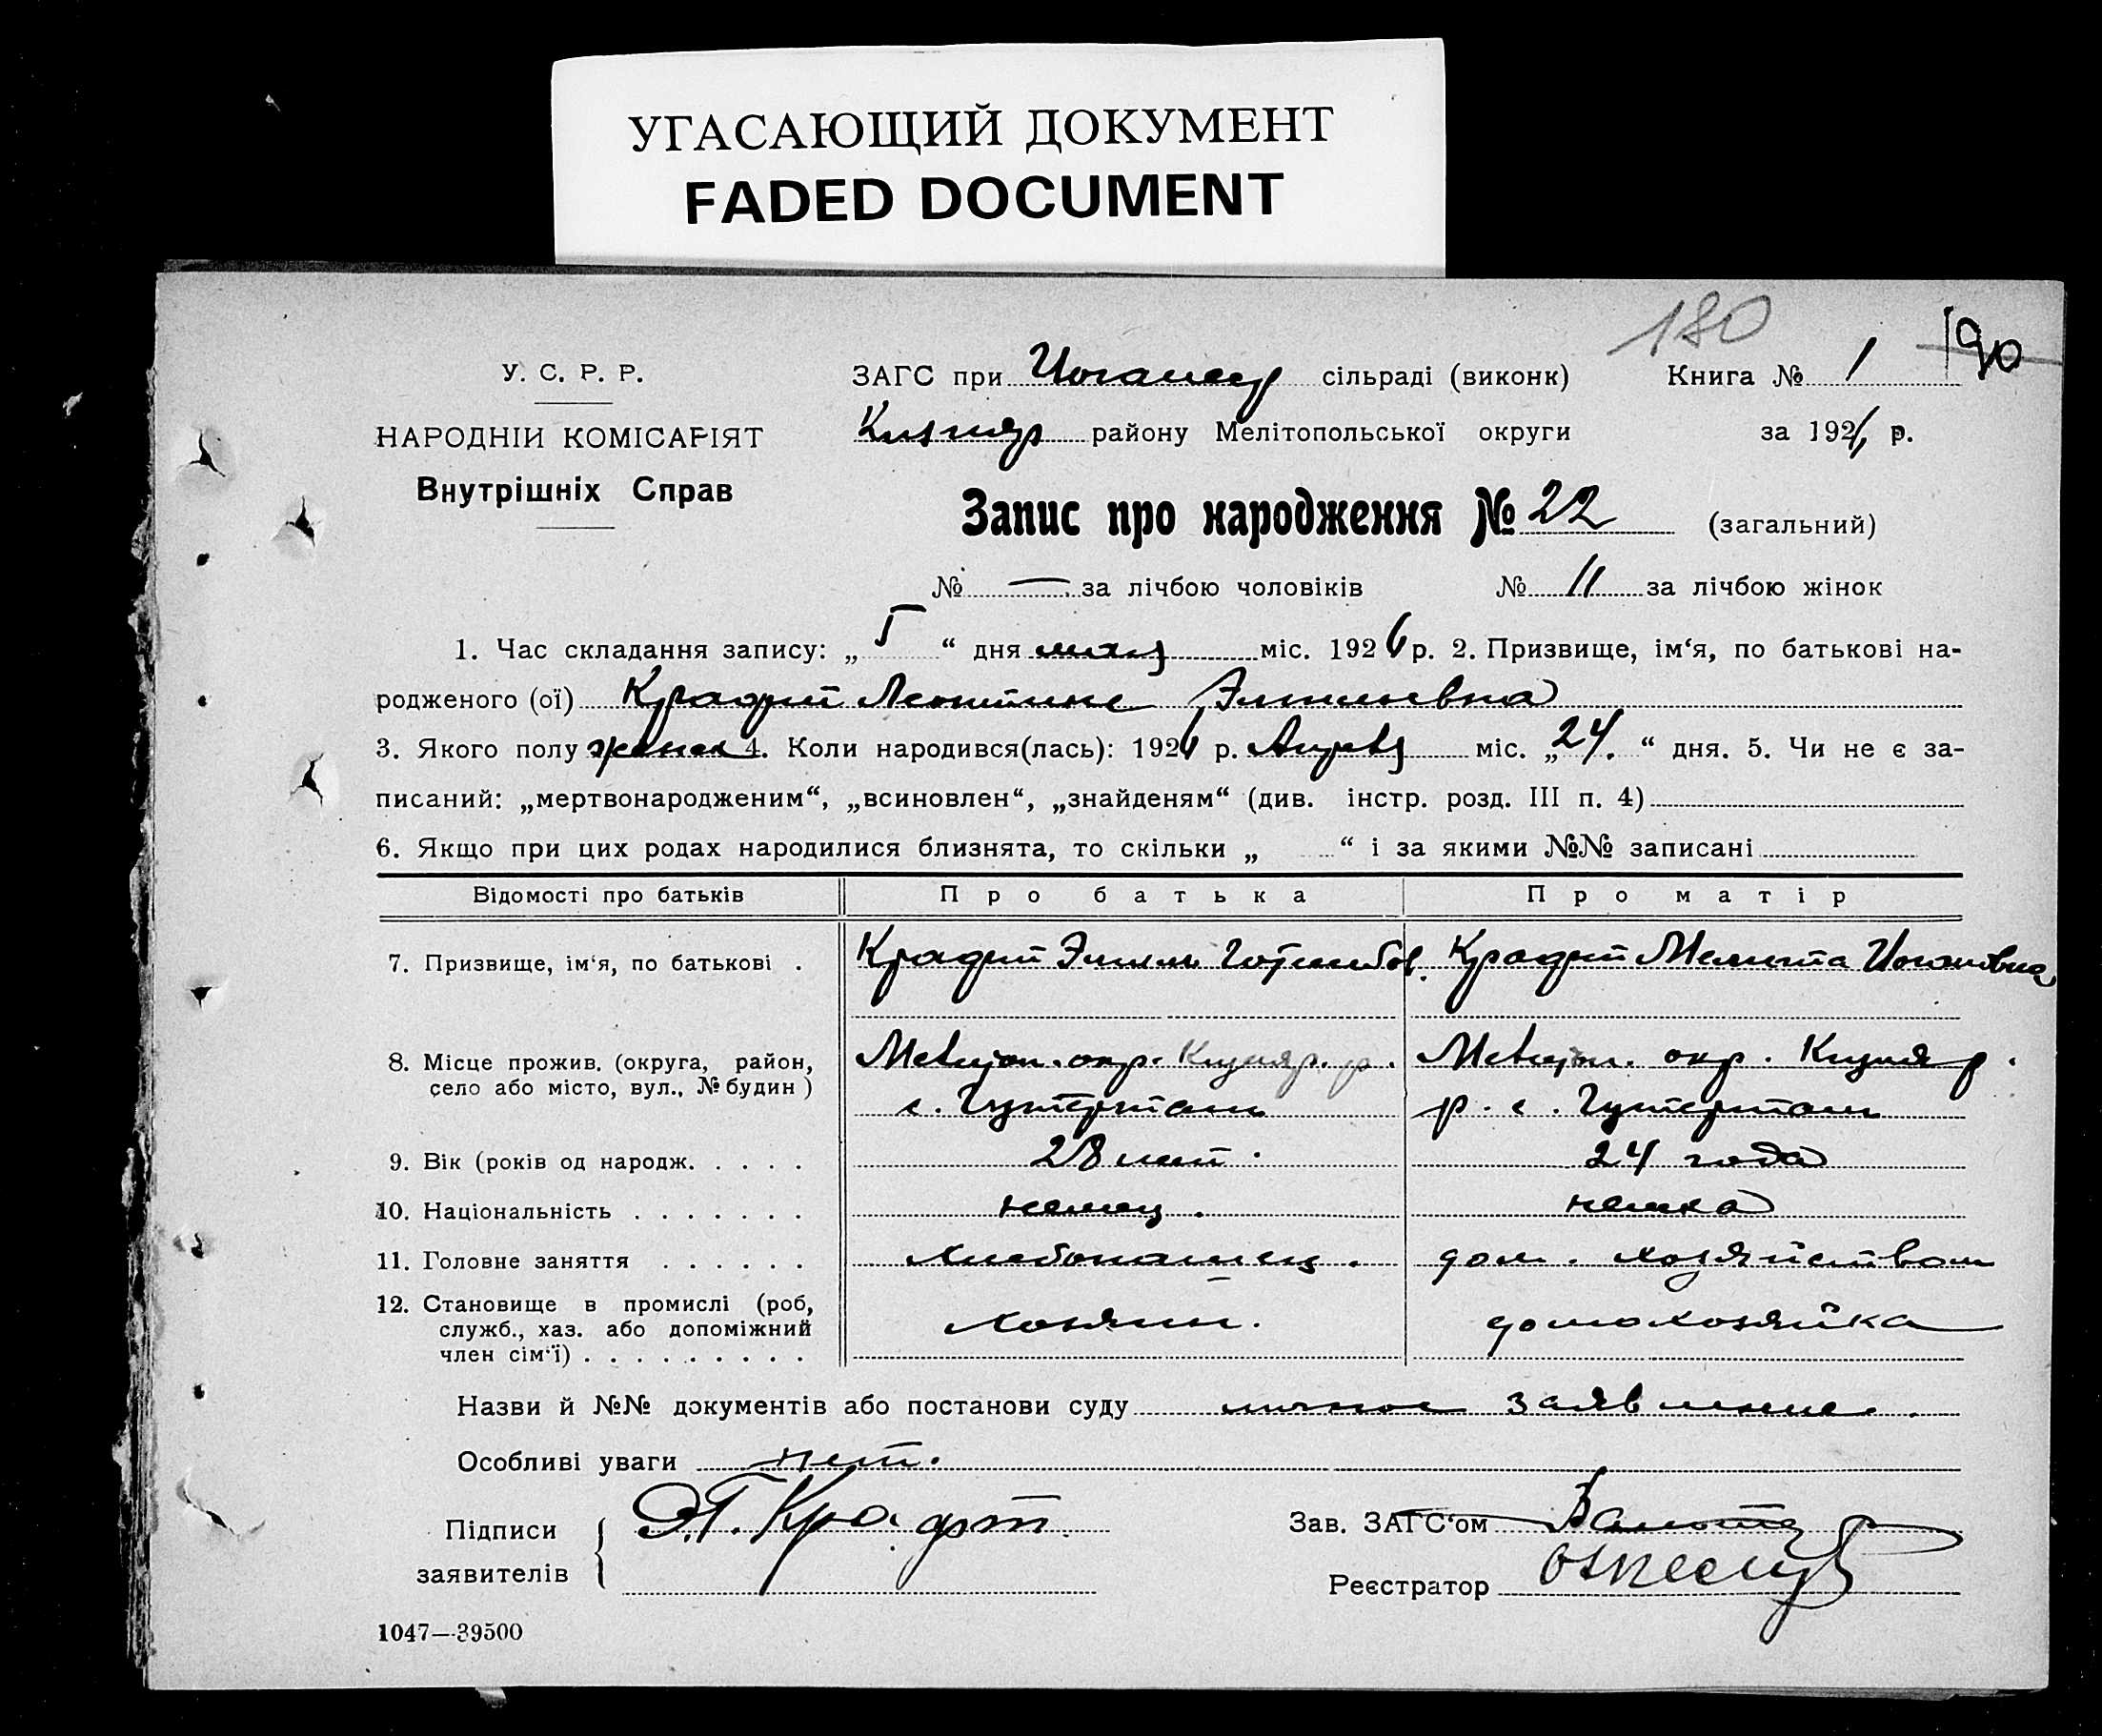 УГАСАЮЩИЙ ДОКУМЕНТ
FADED DOCUMENT
180
190
У. С. Р. Р.
ЗАГС при сільраді (виконк)
Книга № 1
НАРОДНІЙ КОМІСАРІЯТ
району Мелітопольської округи
за 1926 р.
Внутрішніх Справ
Запис про народження № 22 (загальний)
№ — за лічбою чоловіків № 11 за лічбою жінок
1. Час складання запису: „ “ дня мая міс. 1926 р. 2. Призвище, ім‘я, по батькові на-
родженого (ої) Крафт Леонтине Эмильевна
3. Якого полу женск 4. Коли народився(лась): 1926 р. Апреля міс. „24.“ дня. 5. Чи не є за-
писаний: „мертвонародженим“, „всиновлен“, „знайденям“ (див. інстр. розд. III п. 4)
6. Якщо при цих родах народилися близнята, то скільки „ “ і за якими №№ записані
Відомості про батьків Про батька Про матір
7. Призвище, ім‘я, по батькові . Крафт Эмиль Готлибов. Крафт Мелита Иогановна
8. Місце прожив. (округа, район, Мелитоп. окр. р. Мелитоп. окр.
село або місто, вул., № будин) с. Гутерталь р. с. Гутерталь
9. Вік (років од народж. . . . . 28 лет. 24 года
10. Національність . . . . . . . немец. немка
11. Головне заняття . . . . . . хлебопашец. дом. хозяйством
12. Становище в промислі (роб,
служб., хаз. або допоміжний хозяин. домохозяйка
член сім‘ї) . . . . . . . . .
Назви й №№ документів або постанови суду личное заявление.
Особливі уваги нет.
Підписи Э.Г. Крафт. Зав. ЗАГС‘ом
заявителів Реєстратор
1047—39500